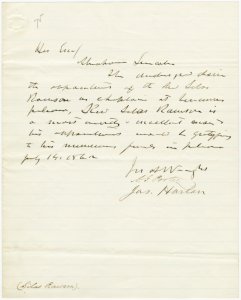 His Ex
Abraham Lincoln
The undersigned desire
the appointment of the Rev Silas
Rawson as chaplain at
Rev Silas Rawson is
a most worthy excellent man
his appointment would be gratifying
to his numerous friends in
July 14. 1862
Jos A Wright
Jas. Harlan
(Silas Rawson)